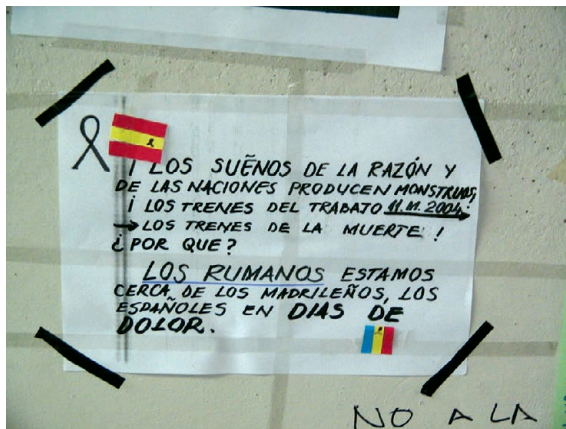 ¡ LOS SUEÑOS DE LA RAZÓN Y
DE LAS NACIONES PRODUCEN MONSTRUOS,
¡ LOS TRENES DEL TRABAJO 11.III.2004!
→ LOS TRENES DE LA MUERTE !
¿ POR QUE ?
LOS RUMANOS ESTAMOS
CERCA DE LOS MADRILEÑOS, LOS
ESPAÑOLES EN DIAS DE
DOLOR.
NO A LA